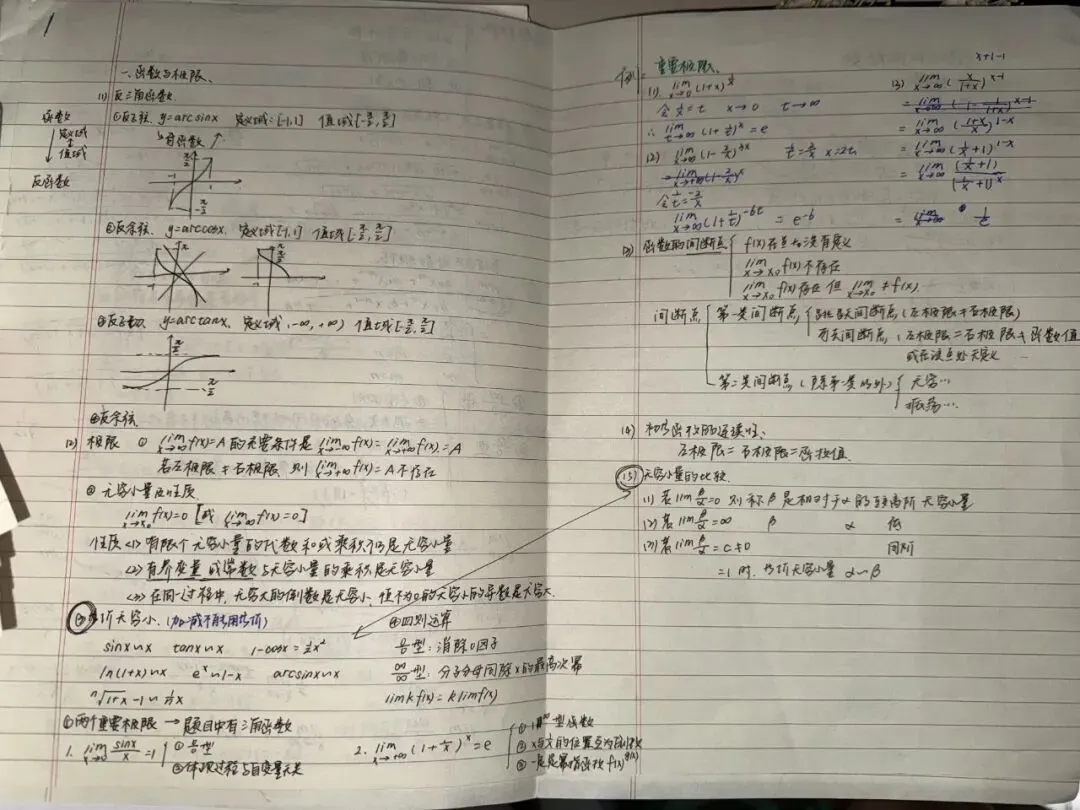 1
一. 函数与极限.
(1) 反三角函数.
函数
定义域
值域
反函数
①反正弦. y=arcsinx 定义域:[-1,1] 值域[-π/2, π/2]
↳奇函数 ↗
π/2
-1
1
-π/2
②反余弦. y=arccosx, 定义域[-1,1] 值域[-π/2, π/2]
③反正切. y=arctanx, 定义域(-∞,+∞) 值域[-π/2, π/2]
π/2
④反余弦.
(2) 极限 ① lim x→∞ f(x)=A 的充要条件是 lim x→-∞ f(x)= lim x→+∞ f(x)=A
若左极限≠右极限, 则 lim x→∞ f(x)=A 不存在
② 无穷小量及性质.
lim x→x₀ f(x)=0 [或 lim x→∞ f(x)=0]
性质<1> 有限个无穷小量的代数和或乘积仍是无穷小量
<2> 有界变量或常数与无穷小量的乘积是无穷小量
<3> 在同一过程中, 无穷大的倒数是无穷小, 值不为0的无穷小的导数是无穷大.
③等价无穷小. (加减不能用等价)
sinx∽x tanx∽x 1-cosx=½x²
ln(1+x)∽x eˣ∽1-x arcsinx∽x
ⁿ√1+x -1∽ 1/n x
④四则运算
0/0型: 消除0因子
∞/∞型: 分子分母同除x的最高次幂
limkf(x)=klimf(x)
⑤两个重要极限 → 题目中有三角函数
1. lim x→0 sinx/x =1
① 0/0型
2. lim x→+∞ (1+1/x)ˣ=e
① 1^∞型函数
例: 重要极限.
(1). lim x→0 (1+x)^(1/x)
令 1/x=t x→0 t→∞
∴ lim t→∞ (1+1/t)ˣ=e
(2) lim x→∞ (1-2/x)^3x
lim x→∞ (1+1/t)^-6t = e^-6
x+1-1
(3) lim x→∞ (x/(1+x))^(x-1)
= lim x→∞ (1-1/(1+x))^(x-1)
= lim x→∞ ((1+x)/x)^(1-x)
= lim x→∞ (1/x+1)^(1-x)
= lim x→∞ (1/x+1)/(1/x+1)ˣ
= 1/e
(3) 函数的间断点
f(x)在点x₀没有定义
lim x→x₀ f(x)不存在
lim x→x₀ f(x)存在但 lim x→x₀ ≠f(x)
间断点
第一类间断点
跳跃间断点, (左极限≠右极限)
可去间断点, (左极限=右极限≠函数值
或在该点处无定义
第二类间断点 (除第一类以外)
无穷…
振荡…
(4) 初等函数的连续性.
左极限=右极限=函数值.
(5) 无穷小量的比较
(1) 若lim β/α=0 则称β是相对于α的较高阶无穷小量
(2) 若lim β/α=∞ β α 低
(3) 若lim β/α=c≠0 同阶
=1时. 等价无穷小量 α∽β